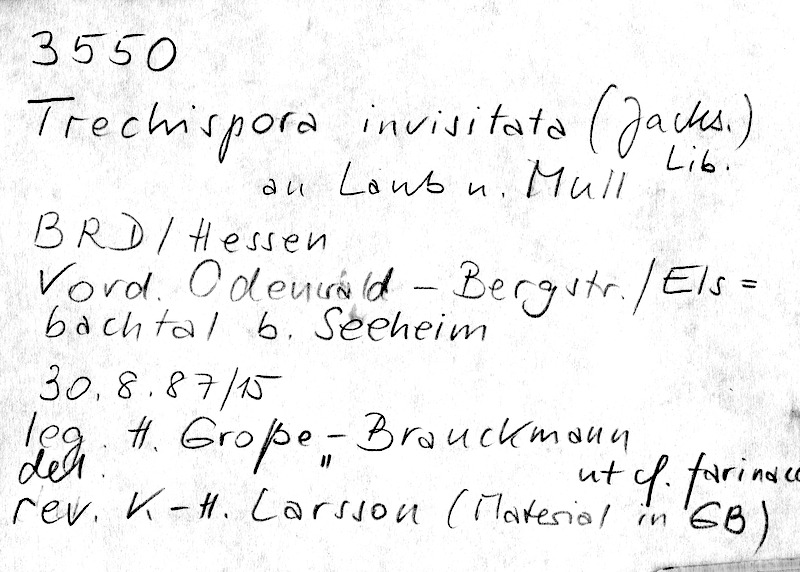 3550
Trechispora invisitata (Jacks.)
Lib.
an Laub u. Mull
BRD/Hessen
Vord. Odenwald - Bergstr./Els=
bachtal b. Seeheim
30.8.87/15
leg. H. Große-Brauckmann
det. " ut cf. farinacea
rev. K-H. Larsson (Material in GB)